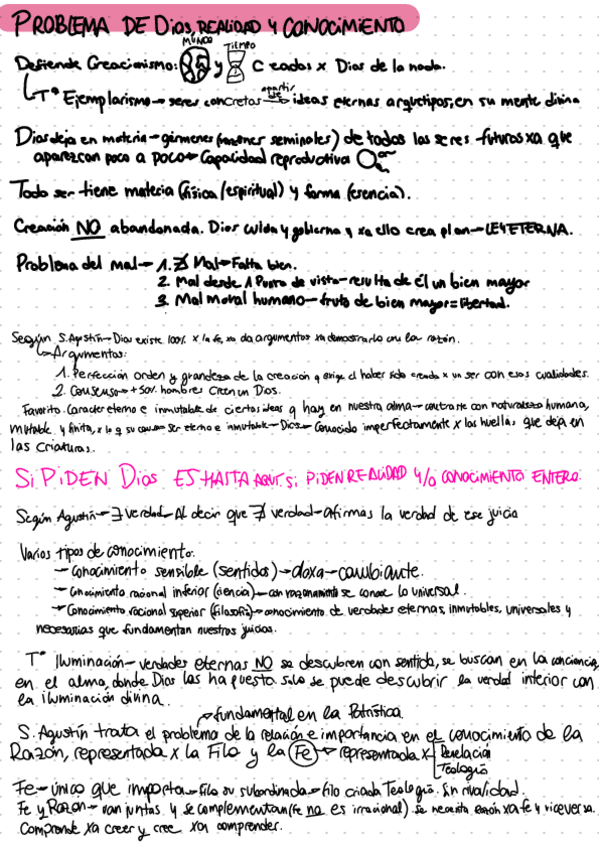 PROBLEMA DE Dios, REALIDAD Y CONOCIMIENTO
MUNDO TIEMPO
Defiende Creacionismo: y Creados x Dios de la nada.
Tª Ejemplarismo → seres concretos a partir de ideas eternas arquetipos, en su mente divina
Dios deja en materia → gérmenes (razones seminales) de todos los seres futuros xa que
aparezcan poco a poco → Capacidad reproductiva
Todo ser tiene materia (física/espiritual) y forma (esencia).
Creación NO abandonada. Dios cuida y gobierna y xa ello crea plan → LEY ETERNA.
Problema del mal → 1. ∄ Mal → Falta bien.
2. Mal desde 1 Punto de vista → resulta de él un bien mayor
3. Mal moral humano → fruto de bien mayor = libertad.
Según S. Agustín → Dios existe 100% x la fe, xo da argumentos xa demostrarlo con la razón.
Argumentos:
1. Perfección orden y grandeza de la creación q exige el haber sido creada x un ser con esas cualidades.
2. Consenso → +50% hombres creen un Dios.
Favorito. Carácter eterno e inmutable de ciertas ideas q hay en nuestra alma → contraste con naturaleza humana,
mutable y finita, x lo q su causa → Ser eterno e inmutable → Dios → Conocido imperfectamente x las huellas que deja en
las criaturas.
Si PIDEN Dios ES HASTA AQUÍ, si PIDEN REALIDAD Y/O CONOCIMIENTO ENTERO.
Según Agustín → ∃ verdad → Al decir que ∄ verdad → afirmas la verdad de ese juicio
Varios tipos de conocimiento:
— Conocimiento sensible (sentidos) → doxa → cambiante.
— Conocimiento racional inferior (ciencia) → con razonamiento se conoce lo universal.
— Conocimiento racional superior (filosofía) → conocimiento de verdades eternas, inmutables, universales y
necesarias que fundamentan nuestros juicios.
Tª Iluminación → verdades eternas NO se descubren con sentido, se buscan en la conciencia,
en el alma, donde Dios las ha puesto. Solo se puede descubrir la verdad interior con
la iluminación divina.
fundamental en la Patrística.
S. Agustín trata el problema de la relación e importancia en el conocimiento de la
Razón, representada x la Filo y la Fe → representada x Revelación
Teología
Fe → único que importa → filo su subordinada → filo criada Teología. Sin rivalidad.
Fe y Razón → van juntas y se complementan (fe no es irracional). Se necesita razón xa fe y viceversa.
Comprende xa creer y cree xa comprender.